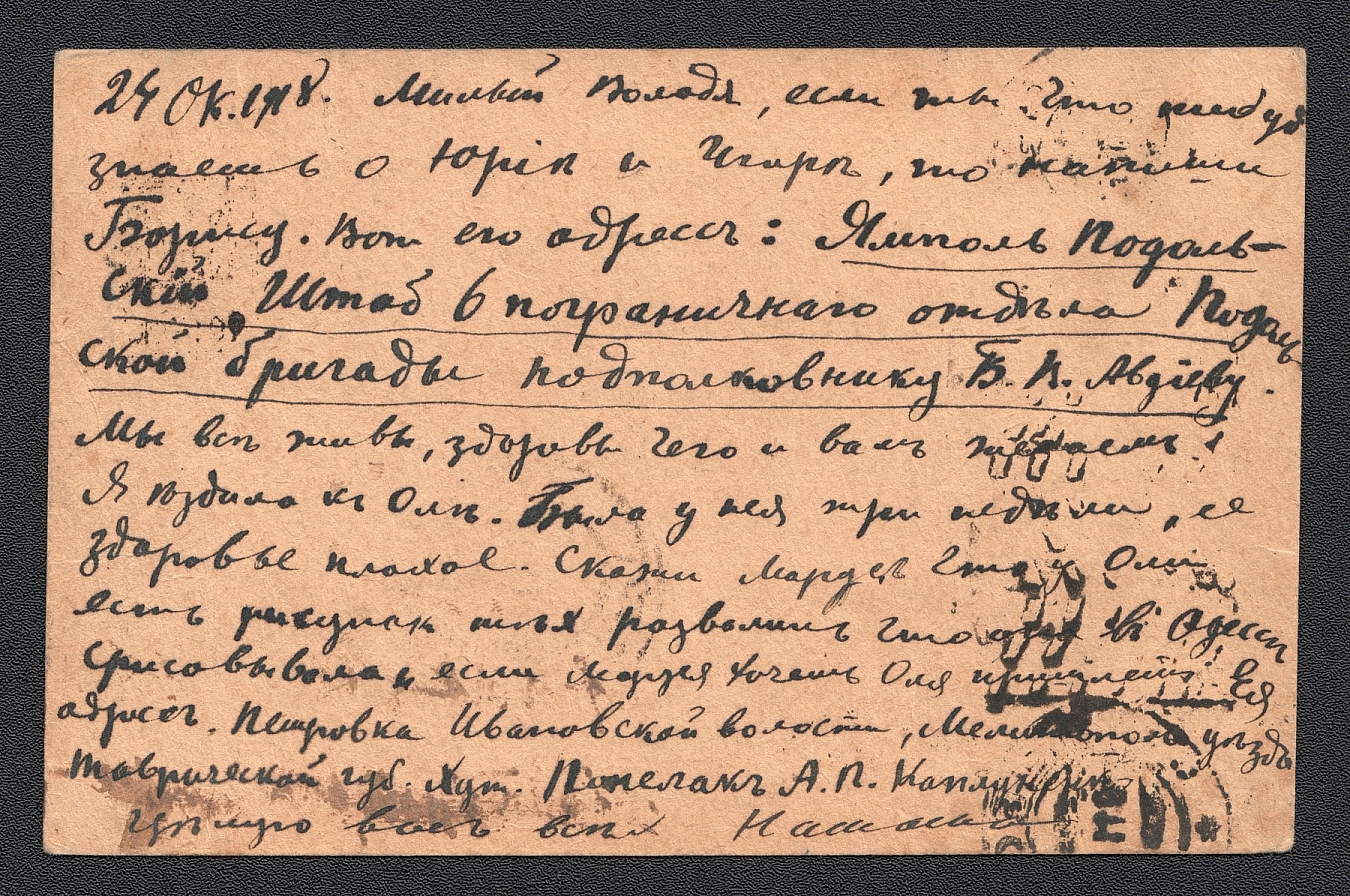 24 Ок. 1918. Милый Володя, если ты что нибудь
знаешь о Юрiѣ и Игорѣ, то напиши
Борису. Вот его адрессъ: Ямполь Подоль-
скiй, Штаб 6 пограничнаго отдѣла Подоль
ской бригады подполковнику Б. П. Авдiеву.
Мы всѣ живы, здоровы чего и вамъ желаемъ!
Я ѣздила къ Олѣ. Была у нея три недѣли, ее
здоровье плохое. Скажи что у Оли
есть рисунок тѣх развалинъ что она въ Одессѣ
срисовывала, и если хочетъ Оля пришлетъ. Ея
адресъ. Петровка Ивановской волости, Мелитополь уѣзда
Таврической губ. Хут. А. П.
Цѣлую васъ всѣх Наташа